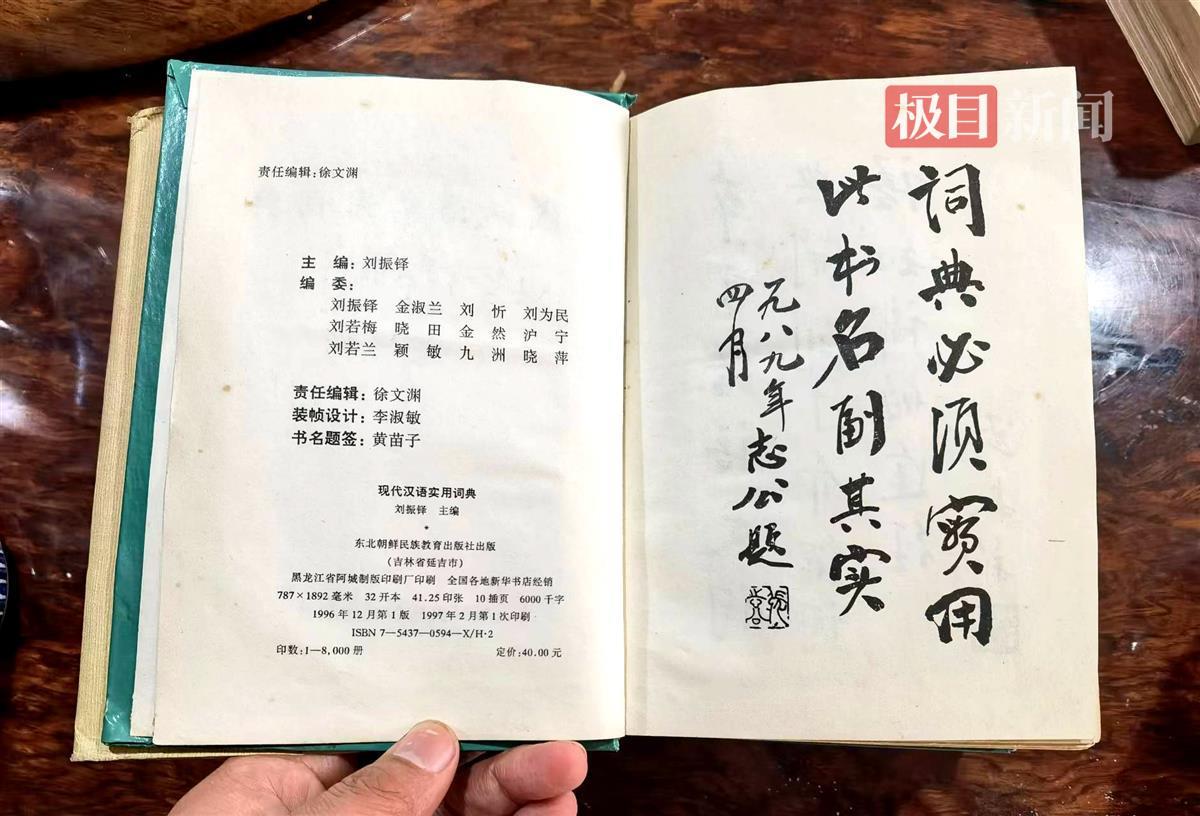 极目新闻
责任编辑:徐文渊
主 编:刘振铎
编 委:
刘振铎 金淑兰 刘 忻 刘为民
刘若梅 晓 田 金 然 沪 宁
刘若兰 颖 敏 九 洲 晓 萍
责任编辑:徐文渊
装帧设计:李淑敏
书名题签:黄苗子
现代汉语实用词典
刘振铎 主编
*
东北朝鲜民族教育出版社出版
(吉林省延吉市)
黑龙江省阿城制版印刷厂印刷 全国各地新华书店经销
787×1892毫米 32开本 41.25印张 10插页 6000千字
1996年12月第1版 1997年2月第1次印刷
ISBN 7—5437-0594—X/H·2
印数:1—8,000册 定价:40.00元
词典必须实用
此书名副其实
一九八九年志公题
四月